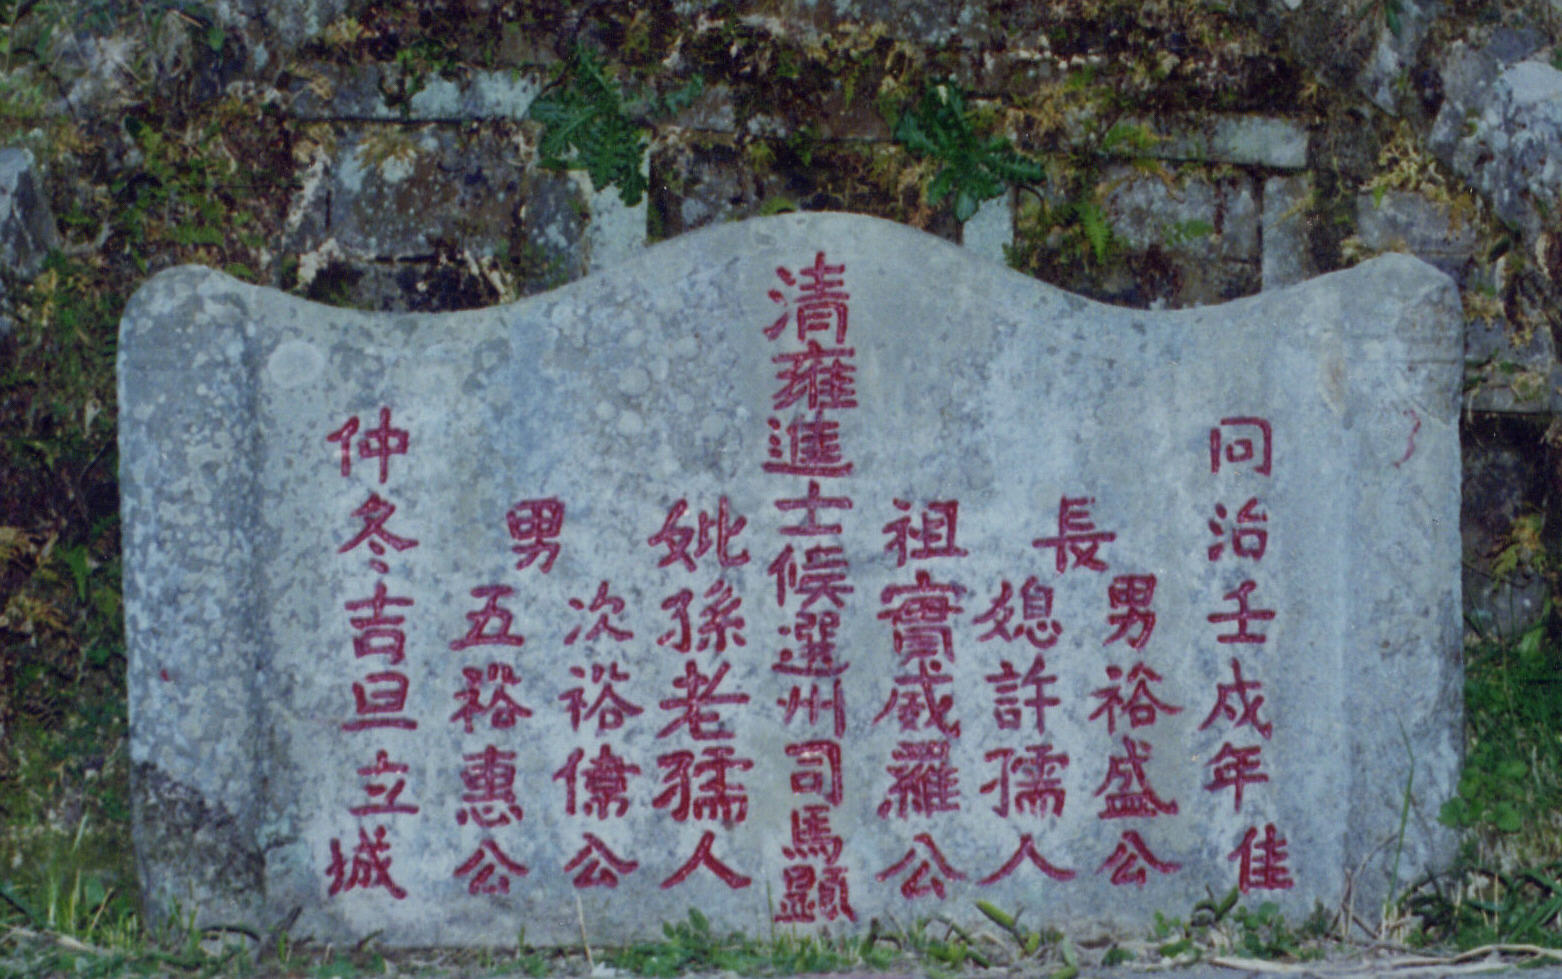 同治壬戌年佳
長
男裕盛公
媳許孺人
祖實威羅公
清雍進士候選州司馬顯
妣孫老孺人
男
次裕僚公
五裕惠公
仲冬吉旦立城